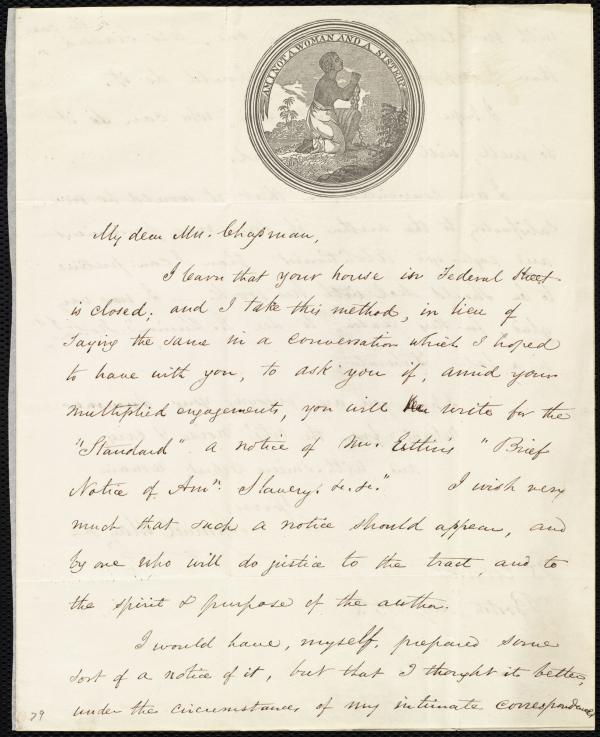 AM I NOT A WOMAN AND A SISTER?
My dear Mrs. Chapman,
I learn that your house in Federal Street
is closed; and I take this method, in lieu of
saying the same in a conversation which I hoped
to have with you, to ask you if, amid your
multiplied engagements, you will write for the
"Standard" a notice of Mr. Estlin's "Brief
Notice of Amn. Slavery, &c. &c." I wish very
much that such a notice should appear, and
by one who will do justice to the tract, and to
the spirit & purpose of the author.
I would have, myself, prepared some
sort of a notice of it, but that I thought it better,
under the circumstances of my intimate correspondence
79